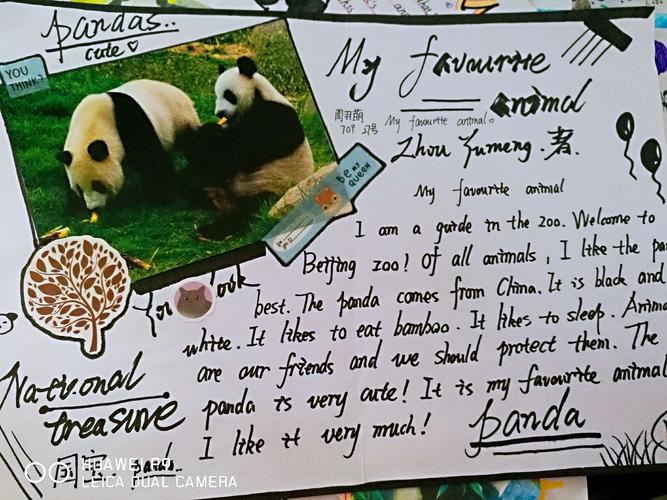 pandas..
cute
YOU
THINK?
My favourite
animal
周羽萌
709 27号
My favourite animal。
Zhou Yumeng.著.
BE MY
QUEEN
My favourite animal
I am a guide in the zoo. Welcome to
Beijing zoo! Of all animals, I like the pa
best. The panda comes from China. It is black and
white. It likes to eat bamboo. It likes to sleep. Anima
are our friends and we should protect them. The
panda is very cute! It is my favourite animal
I like it very much!
panda
You look
National
treasure
国宝
HUAWEI P9
LEICA DUAL CAMERA